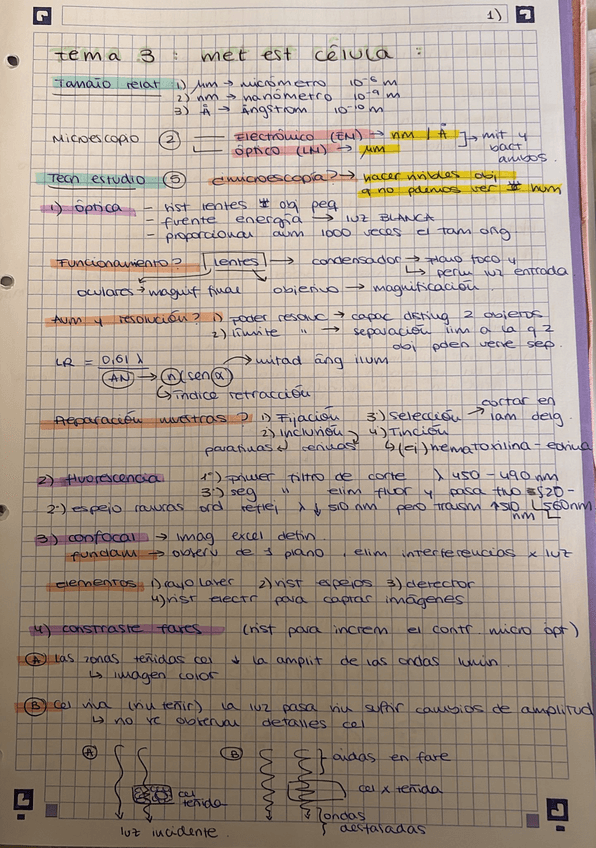 1)
Tema 3 : met est célula :
Tamaño relat 1) μm → micrómetro 10⁻⁶ m
2) nm → nanómetro 10⁻⁹ m
3) Å → Ångstrom 10⁻¹⁰ m
Microscopio ② Electrónico (EM) → nm / Å → mit y
óptico (LM) → μm bact
ambos.
Tecn estudio ⑤ ¿microscopía? → hacer visibles obj
q no pdemos ver # hum
1) óptica - sist lentes # obj peq
- fuente energía → luz BLANCA
- proporcionar aum 1000 veces el tam orig
Funcionamiento? lentes → condensador → plano foco y
↳ perm luz entrada
oculares → magnif final objetivo → magnificación
Aum y resolución? 1) poder resoluc → capac disting 2 objetos
2) límite " → separación lim a la q 2
obj pden verse sep.
LR = 0,61 λ / AN → n (sen α) → mitad áng ilum
↳ índice refracción
Preparación muestras? 1) Fijación 3) Selección → cortar en lam delg.
2) inclusión 4) Tinción
parafinas resinas ↳ (ej) hematoxilina - eosina
2) fluorescencia 1º) primer filtro de corte λ 450 - 490 nm
3º) seg " elim fluor y pasa 520 -
2º) espejo ranuras ord reflej λ ↓ 510 nm pero transm ↑ 510 nm 560nm
3) confocal → imag excel defin.
fundam → observ de 1 plano, elim interferencias x luz
elementos 1) rayo laser 2) sist espejos 3) detector
4) sist electr para captar imágenes
4) constraste fases (sist para increm el contr. micro ópt)
Ⓐ las zonas teñidas cel ↓ la amplit de las ondas lumin.
↳ imagen color
Ⓑ cel viva (sin teñir) la luz pasa sin sufrir cambios de amplitud
↳ no se observan detalles cel
Ⓐ Ⓑ } ondas en fase
cel teñida
cel x teñida
luz incidente.
} ondas desfasadas